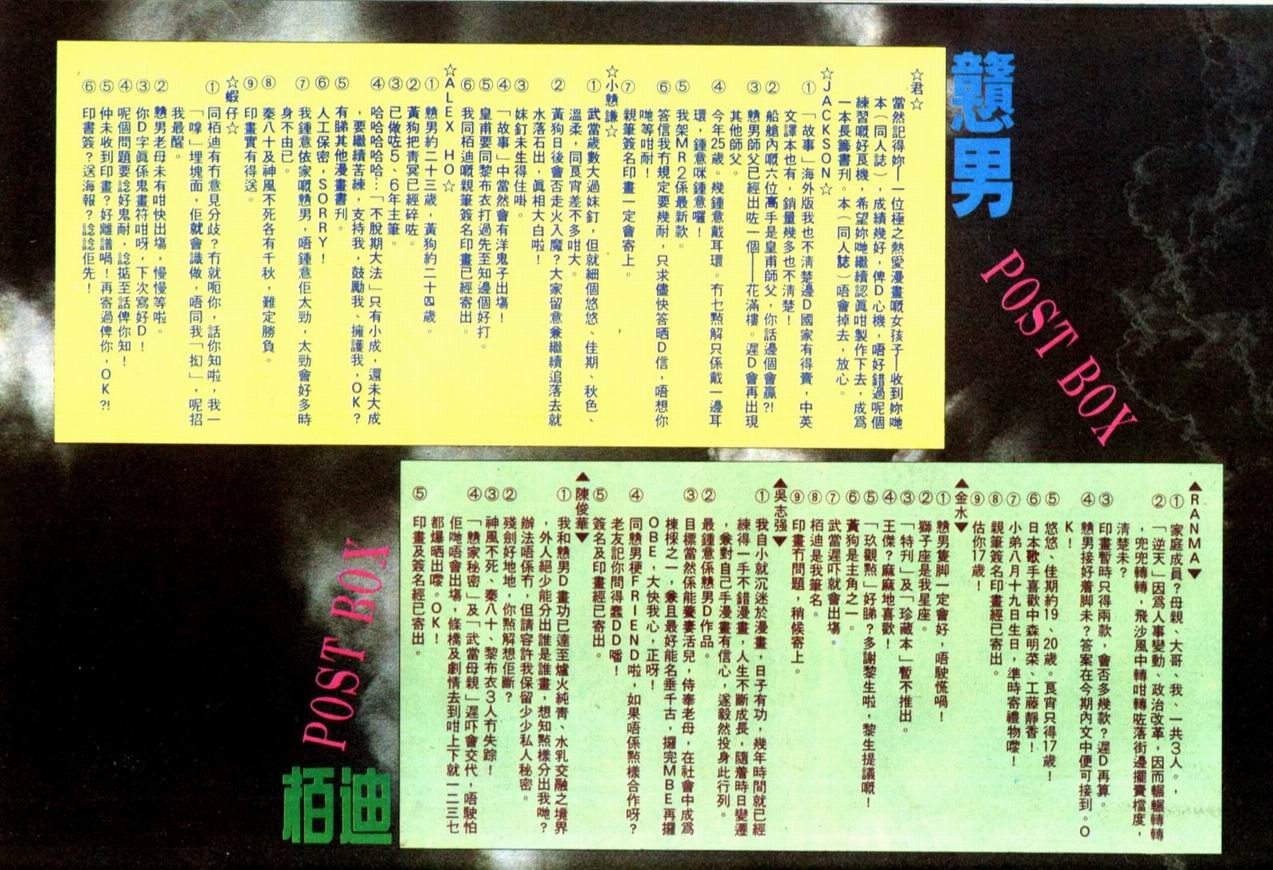 戇男
POST BOX
☆君☆
當然記得妳──一位極之熱愛漫畫嘅女孩子──收到妳哋
本(同人誌),成績幾好,俾D心機,唔好錯過呢個
練習嘅好良機,希望妳哋繼續認眞咁製作下去,成爲
一本長籌書刊。本(同人誌)唔會掉去,放心。
☆JACKSON☆
①「故事」海外版我也不淸楚邊D國家有得賣,中英
文譯本也有,銷量幾多也不淸楚!
②船艙內嘅六位高手是皇甫師父,你話邊個會贏?!
③戇男師父已經出咗一個──花滿樓。遲D會再出現
其他師父。
④今年25歲。幾鍾意戴耳環。冇乜點解只係戴一邊耳
環,鍾意咪鍾意囉!
⑤我架MR2係最新款。
⑥答信我冇規定要幾耐,只求儘快答晒D信,唔想你
哋等咁耐!
⑦親筆簽名印畫一定會寄上。
☆小戇謙☆
①武當歲數大過妹釘,但就細個悠悠、佳期、秋色、
溫柔,同良宵差不多咁大。
②黃狗日後會否走火入魔?大家留意兼繼續追落去就
水落石出,眞相大白啦!
③妹釘未生得住啩。
④「故事」中當然會有洋鬼子出場!
⑤皇甫要同黎布衣打過先至知邊個好打。
⑥我同栢迪嘅親筆簽名印畫已經寄出。
☆ALEX HO☆
①戇男約二十三歲,黃狗約二十四歲。
②黃狗把靑冥已經碎咗。
③已做咗5、6年主筆。
④哈哈哈哈哈…「不脫期大法」只有小成,還未大成
,要繼續苦練,支持我,鼓勵我、擁護我,OK?
⑤有睇其他漫畫書刊。
⑥人工保密,SORRY!
⑦我鍾意依家嘅戇男,唔鍾意佢太勁,太勁會好多時
身不由已。
⑧秦八十及神風不死各有千秋,難定勝負。
⑨印畫實有得送。
☆蝦仔☆
①同栢迪有冇意見分歧?冇就呃你,話你知啦,我一
「嗱」埋塊面,佢就會識做,唔同我「拗」,呢招
我最醒。
②戇男老母未有咁快出場,慢慢等啦。
③你D字眞係鬼畫符咁呀,下次寫好D!
④呢個問題要諗好鬼耐,諗掂至話俾你知!
⑤仲未收到印畫?好離譜喎!再寄過俾你,OK?!
⑥印書簽?送海報?諗諗佢先!
▲RANMA▼
①家庭成員?母親、大哥、我、一共3人。,
②「逆天」因爲人事變動、政治改革,因而輾輾轉轉
,兜兜轉轉,飛沙風中轉咁轉咗落街邊擺賣檔度,
淸楚未?
③印畫暫時只得兩款,會否多幾款?遲D再算。
④戇男接好着脚未?答案在今期內文中便可接到。O
K!
⑤悠悠、佳期約19、20歲。良宵只得17歲!
⑥日本歌手喜歡中森明菜、工藤靜香!
⑦小弟八月十九日生日,準時寄禮物嚟!
⑧親筆簽名印畫經已寄出。
⑨估你17歲!
▲金水▼
①戇男隻脚一定會好,唔駛慌喎!
②獅子座是我星座。
③「特刋」及「珍藏本」暫不推出。
④王傑?麻麻地喜歡!
⑤「玖觀點」好睇?多謝黎生啦,黎生提議嘅!
⑥黃狗是主角之一。
⑦武當遲吓就會出塲。
⑧栢迪是我筆名。
⑨印畫冇問題,稍候寄上。
▲吳志强▼
①我自小就沉迷於漫畫,日子有功,幾年時間就已經
練得一手不錯漫畫,人生不斷成長,隨着時日變遷
,兼對自己手漫畫有信心,遂毅然投身此行列。
②最鍾意係戇男D作品。
③目標當然係能養妻活兒,侍奉老母,在社會中成爲
棟樑之一,兼且最好能名垂千古,攞完MBE再攞
OBE,大快我心,正呀!
④同戇男梗FRIEND啦,如果唔係點樣合作呀?
老友記你問得蠢DD噃!
⑤簽名及印畫經已寄出。
▲陳俊華▼
①我和戇男D畫功已達至爐火純靑、水乳交融之境界
,外人絕少能分出誰是誰畫,想知點樣分出我哋?
辦法唔係冇,但請容許我保留少少私人秘密。
②殘劍好地地,你點解想佢斷?
③神風不死、秦八十、黎布衣3人冇失踪!
④「戇家秘密」及「武當母親」遲吓會交代,唔駛怕
佢哋唔會出塲,條橋及劇情去到咁上下就一二三七
都爆晒出嚟。OK!
⑤印畫及簽名經已寄出。
POST BOX
栢迪